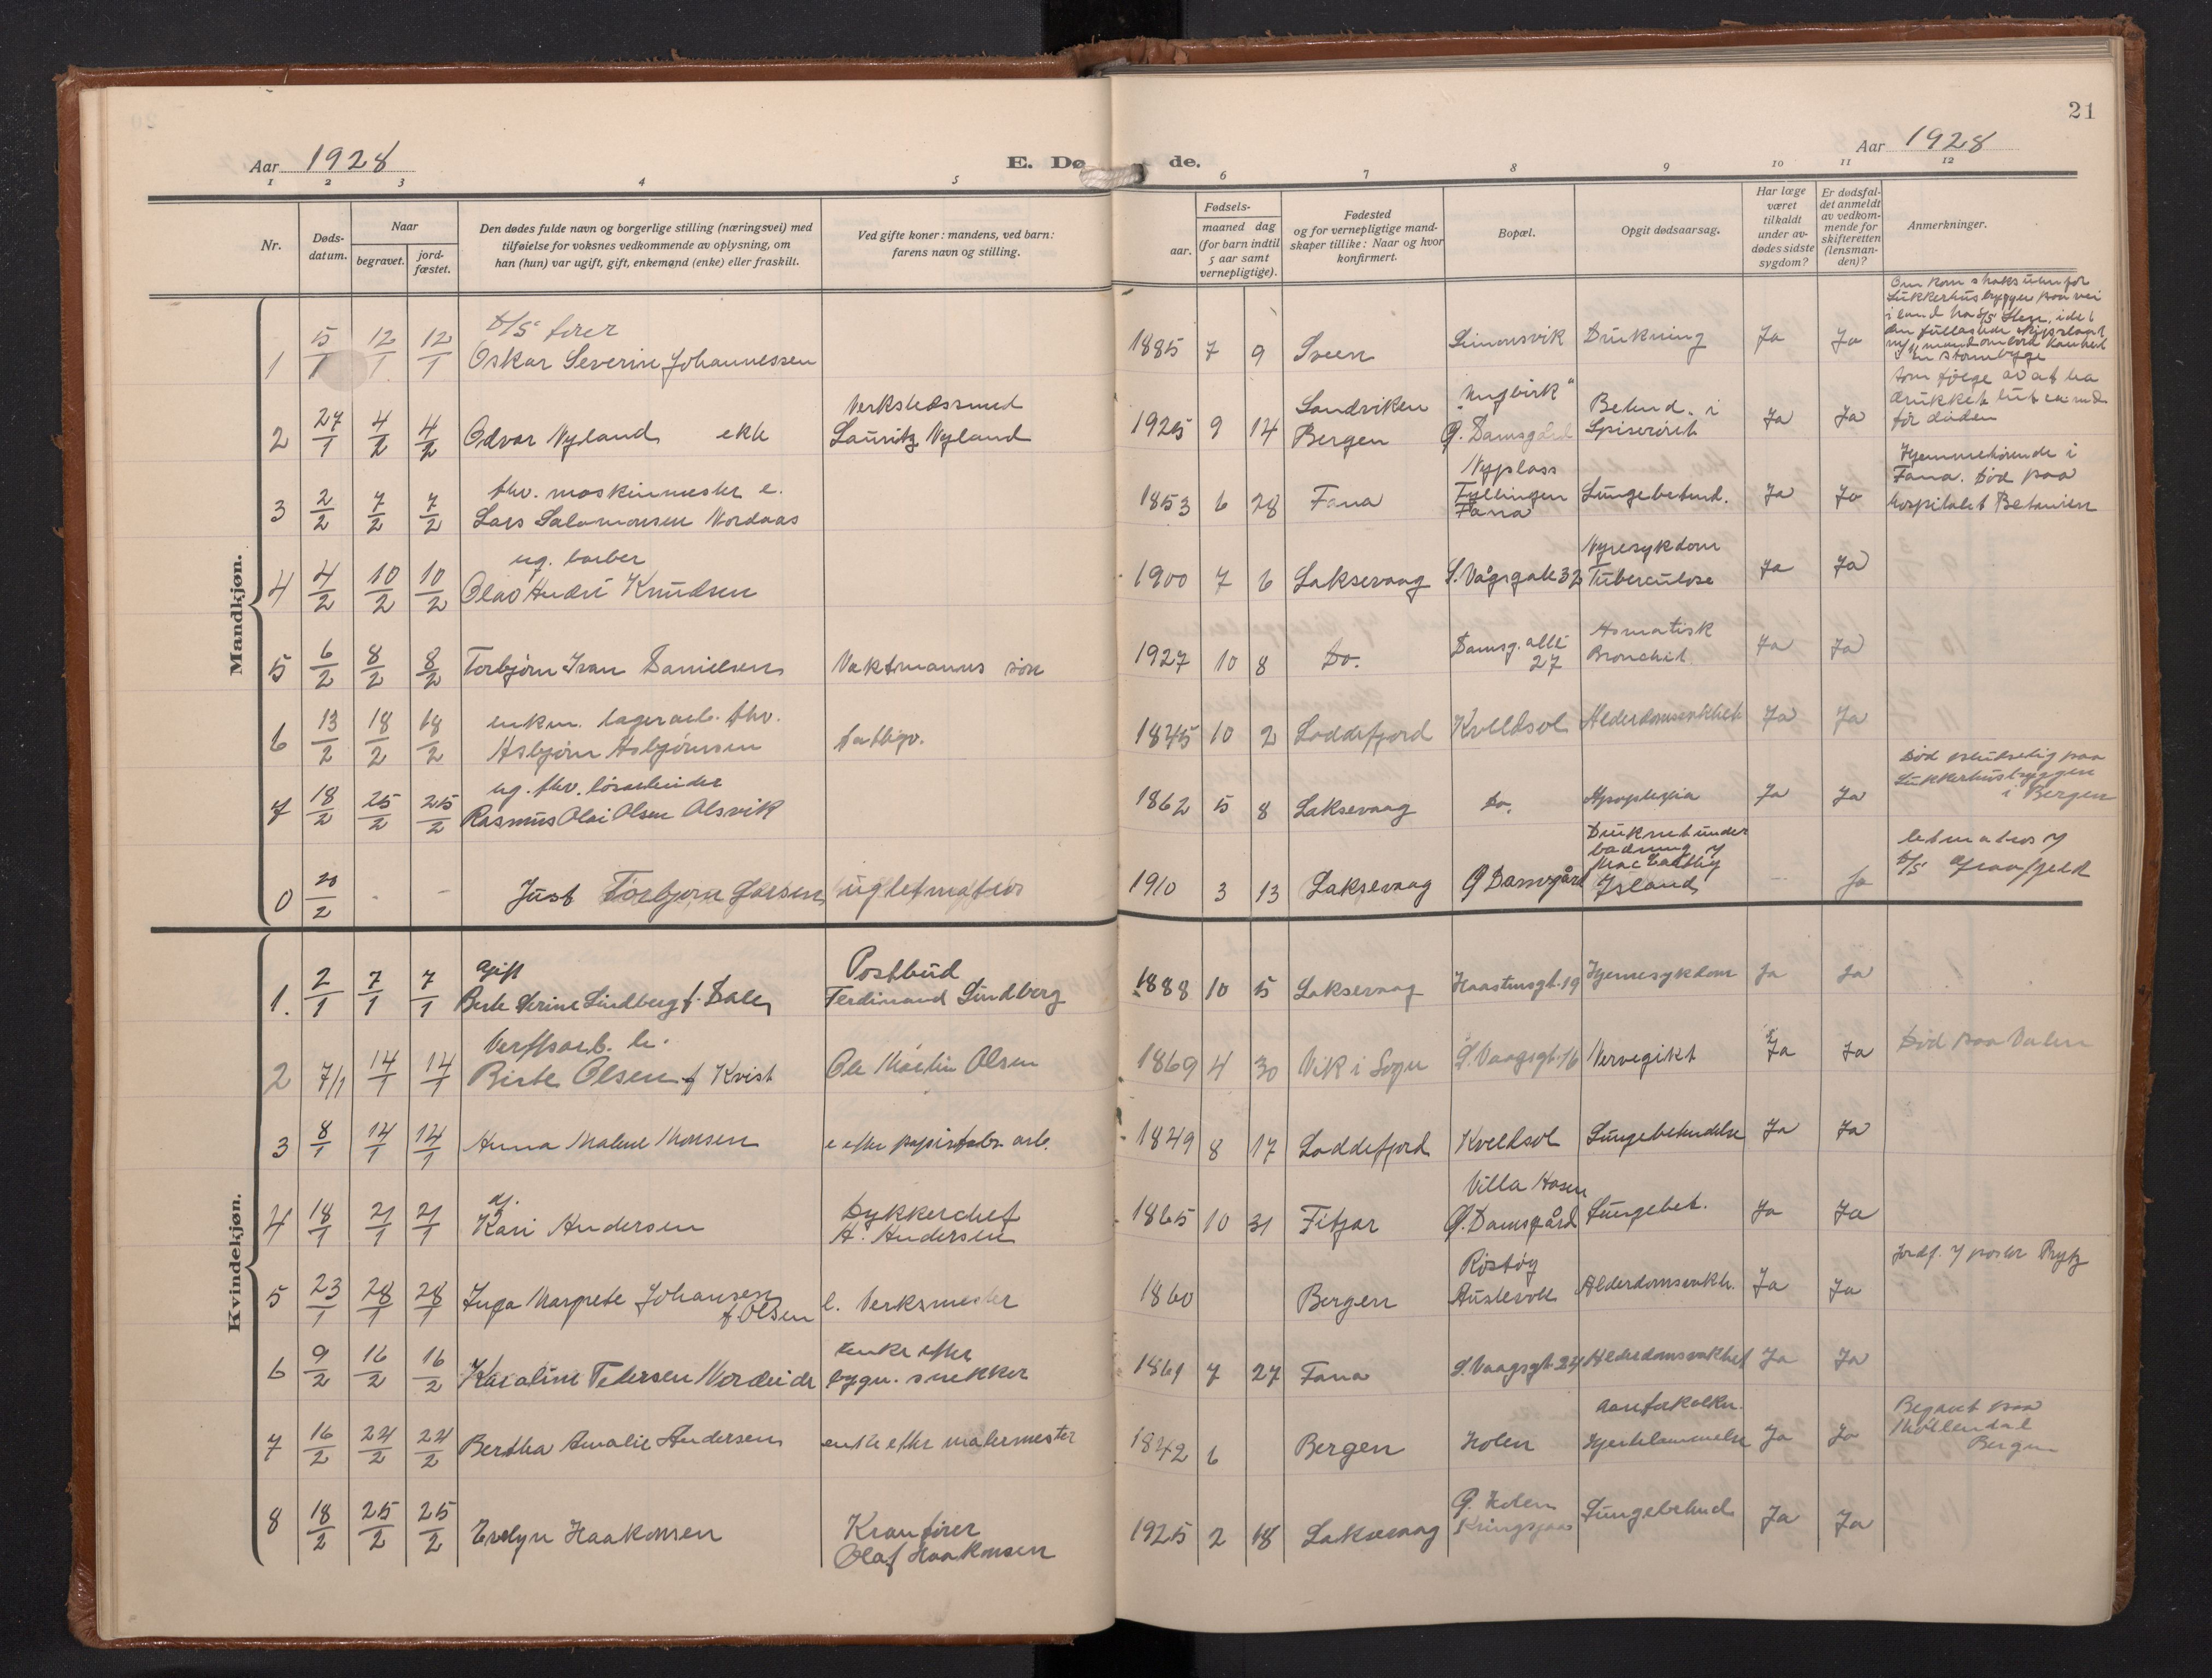 21
Aar 1928
E. Dø de.
Aar 1928
1 2 3 4 5 6 7 8 9 10 11 12
Nr.
Døds-
datum.
Naar
begravet.
jord-
fæstet.
Den dødes fulde navn og borgerlige stilling (næringsvei) med
tilføielse for voksnes vedkommende av oplysning, om
han (hun) var ugift, gift, enkemand (enke) eller fraskilt.
Ved gifte koner: mandens, ved barn:
farens navn og stilling.
Fødsels-
aar.
maaned dag
(for barn indtil
5 aar samt
vernepligtige).
Fødested
og for vernepligtige mand-
skaper tillike: Naar og hvor
konfirmert.
Bopæl.
Opgit dødsaarsag.
Har læge
været
tilkaldt
under av-
dødes sidste
sygdom?
Er dødsfal-
det anmeldt
av vedkom-
mende for
skifteretten
(lensman-
den)?
Anmerkninger.
Mandkjøn.
1 5/1 12/1 12/1 D/S fører
Oskar Severin Johannessen
1885 7 9 Sveen Simonsvik Drukning Ja Ja
2 27/1 4/2 4/2 Odvar Nyland ekte
Verkstedssmed
Lauritz Nyland
1925 9 14 Sandviken
Bergen
"Ungbirk"
Ø. Damsgård
Betend. i
Spiserøret
Ja Ja
som følge av at ha
drukket lut
før døden
3 2/2 7/2 7/2 fhv. maskinmester e.
Lars Salamonsen Nordaas
1853 6 28 Fana
Nyplass
Fyllingen
Fana
Lungebetend. Ja Ja
Hjemmehørende i
Fana. Død paa
hospitalet Betanien
4 4/2 10/2 10/2 ug. barber
Olav André Knudsen
1900 7 6 Laksevaag S. Vågsgate 32
Nyresykdom
Tuberculose
Ja Ja
5 6/2 8/2 8/2 Torbjørn Ivan Danielsen Vaktmanns søn
1927 10 8 Do.
Damsg. allé
27
Asmatisk
Bronchit
Ja Ja
6 13/2 18/2 18/2 enkm. lagerarb. fhv.
Asbjørn Asbjørnsen fattigv.
1845 10 2 Loddefjord Kveldsol Alderdomssvakhet Ja Ja
7 18/2 25/2 25/2 ug. fhv. løsarbeider
Rasmus Olai Olsen Alsvik
1862 5 8 Laksevaag Do. Apoplexia Ja Ja
Død pludselig paa
Sukkerhusbryggen
i Bergen
0 20/2 - - Just Torbjørn Larsen ug letmatros
1910 3 13 Laksevaag Ø Damsgård
Druknet under
Island
- Ja
letmatros
D/S Graafjeld
Kvindekjøn.
1. 2/1 7/1 7/1 Gift
Berte Serine Lindberg f. Dale
Postbud
Ferdinand Lindberg
1888 10 5 Laksevaag Haastensgt. 19 Hjernesykdom Ja Ja
2 7/1 14/1 14/1 Verftsarb. h.
Birte Olsen f Kvist
Ole Martin Olsen
1869 4 30 Vik i Sogn S. Vaagsgt. 16 Nervegikt Ja Ja Død paa Valen
3 8/1 14/1 14/1 Anna Malene Monsen e efter papirfabr. arb.
1849 8 17 Loddefjord Kveldsol Lungebetendelse Ja Ja
4 18/1 21/1 21/1 g.
Kari Andersen
Dykkerchef
H. Andersen
1865 10 31 Fitjar
Villa Hosen
Ø. Damsgård
Lungebet. Ja Ja
5 23/1 28/1 28/1 Inga Margrete Johansen
f Olsen
e. Verksmester
1860 Bergen
Austevoll
Alderdomssvakh. Ja Ja
6 9/2 16/2 16/2 Karoline Petersen Nordeide
enke efter
bygn. snekker
1861 7 27 Fana S. Vaagsgt. 24 Alderdomssvakhet Ja Ja
7 16/2 24/2 24/2 Bertha Amalie Andersen enke efter malermester
1842 6 Bergen Holen
Aareforkalkn.
Hjertelammelse
Ja Ja
Begravet paa
Møllendal
Bergen
8 18/2 25/2 25/2 Evelyn Haakonsen
Kranfører
Olaf Haakonsen
1925 2 18 Laksevaag
Ø. Holen
Lungebetend Ja Ja